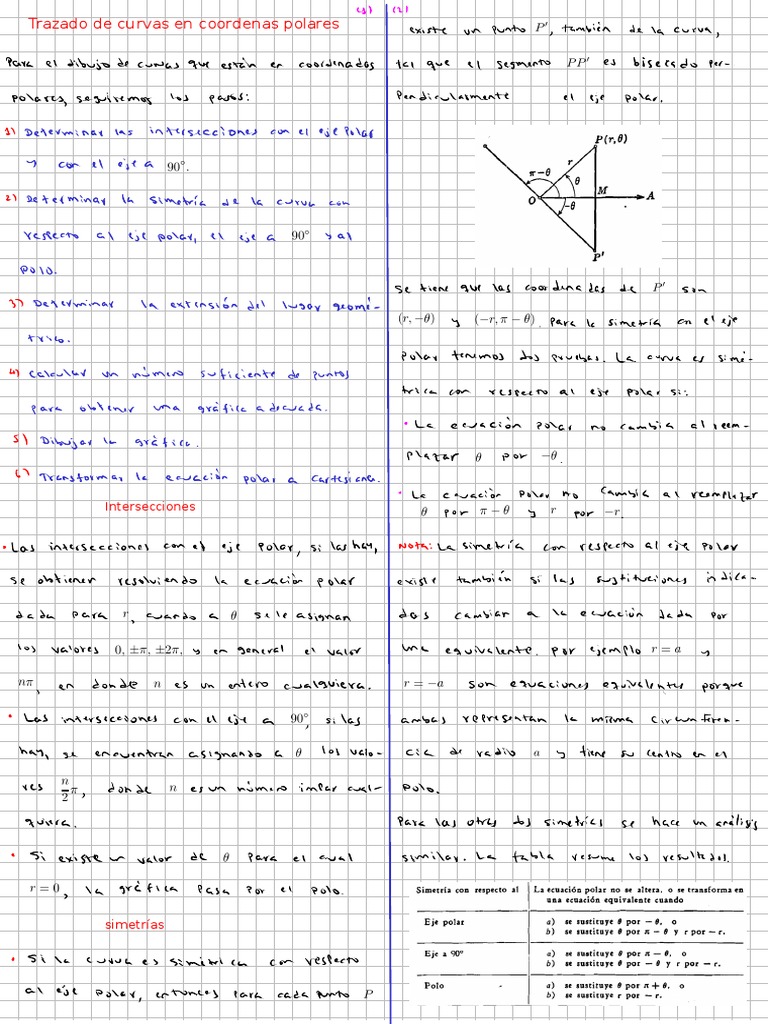 (1)
Trazado de curvas en coordenas polares
Para el dibujo de curvas que están en coordenadas
polares, seguiremos los pasos:
1) Determinar las intersecciones con el eje Polar
y con el eje a 90°.
2) Determinar la simetría de la curva con
respecto al eje polar, el eje a 90° y al
polo.
3) Determinar la extensión del lugar geomé-
trico.
4) Calcular un número suficiente de puntos
para obtener una gráfica adecuada.
5) Dibujar la gráfica.
6) Transformar la ecuación polar a cartesiana.
Intersecciones
• Las intersecciones con el eje polar, si las hay,
se obtienen resolviendo la ecuación polar
dada para r, cuando a θ se le asignan
los valores 0, ±π, ±2π, y en general el valor
nπ, en donde n es un entero cualquiera.
• Las intersecciones con el eje a 90°, si las
hay, se encuentran asignando a θ los valo-
res n/2 π, donde n es un número impar cual-
quiera.
• Si existe un valor de θ para el cual
r = 0, la gráfica pasa por el polo.
simetrías
• Si la curva es simétrica con respecto
al eje polar, entonces para cada punto P
(2)
existe un punto P', también de la curva,
tal que el segmento PP' es bisecado per-
pendicularmente el eje polar.
P(r,θ)
r
π-θ
θ
O
M
A
-θ
P'
Se tiene que las coordenadas de P' son
(r, −θ) y (−r, π − θ). Para la simetría en el eje
polar tenemos dos pruebas. La curva es simé-
trica con respecto al eje polar si:
• La ecuación polar no cambia al reem-
plazar θ por −θ.
• La ecuación polar no cambia al reemplazar
θ por π − θ y r por −r.
Nota: La simetría con respecto al eje polar
existe también si las sustituciones indica-
das cambiar a la ecuación dada por
una equivalente. por ejemplo r = a y
r = −a son ecuaciones equivalentes porque
ambas representan la misma circunferen-
cia de radio a y tiene su centro en el
polo.
Para las otras dos simetrías se hace un análisis
similar. La tabla resume los resultados.
Simetría con respecto al
La ecuación polar no se altera, o se transforma en
una ecuación equivalente cuando
Eje polar
a) se sustituye θ por − θ, o
b) se sustituye θ por π − θ y r por − r.
Eje a 90°
a) se sustituye θ por π − θ, o
b) se sustituye θ por − θ y r por − r.
Polo
a) se sustituye θ por π + θ, o
b) se sustituye r por − r.